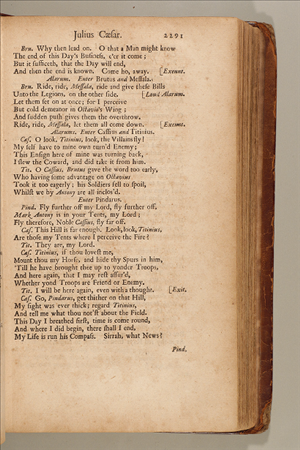 Julius Cæsar. 2291
Bru. Why then lead on. O that a Man might know
The end of this Day's Business, e'er it come;
But it sufficeth, that the Day will end,
And then the end is known. Come ho, away. [Exeunt.
Alarum. Enter Brutus and Messala.
Bru. Ride, ride, Messala, ride and give these Bills
Unto the Legions, on the other side. [Loud Alarum.
Let them set on at once; for I perceive
But cold demeanor in Octavio's Wing;
And sudden push gives them the overthrow,
Ride, ride, Messala, let them all come down. [Exeunt.
Alarums. Enter Cassius and Titinius.
Cas. O look, Titinius, look, the Villains fly!
My self have to mine own turn'd Enemy;
This Ensign here of mine was turning back,
I slew the Coward, and did take it from him.
Tit. O Cassius, Brutus gave the word too early,
Who having some advantage on Octavius
Took it too eagerly; his Soldiers fell to spoil,
Whilst we by Antony are all inclos'd.
Enter Pindarus.
Pind. Fly further off my Lord, fly further off,
Mark Antony is in your Tents, my Lord;
Fly therefore, Noble Cassius, fly far off.
Cas. This Hill is far enough. Look, look, Titinius,
Are those my Tents where I perceive the Fire?
Tit. They are, my Lord.
Cas. Titinius, if thou lovest me,
Mount thou my Horse, and hide thy Spurs in him,
'Till he have brought thee up to yonder Troops,
And here again, that I may rest assur'd,
Whether yond Troops are Friend or Enemy.
Tit. I will be here again, even with a thought. [Exit.
Cas. Go, Pindarus, get thither on that Hill,
My sight was ever thick; regard Titinius,
And tell me what thou not'st about the Field.
This Day I breathed first, time is come round,
And where I did begin, there shall I end,
My Life is run his Compass. Sirrah, what News?
Pind.